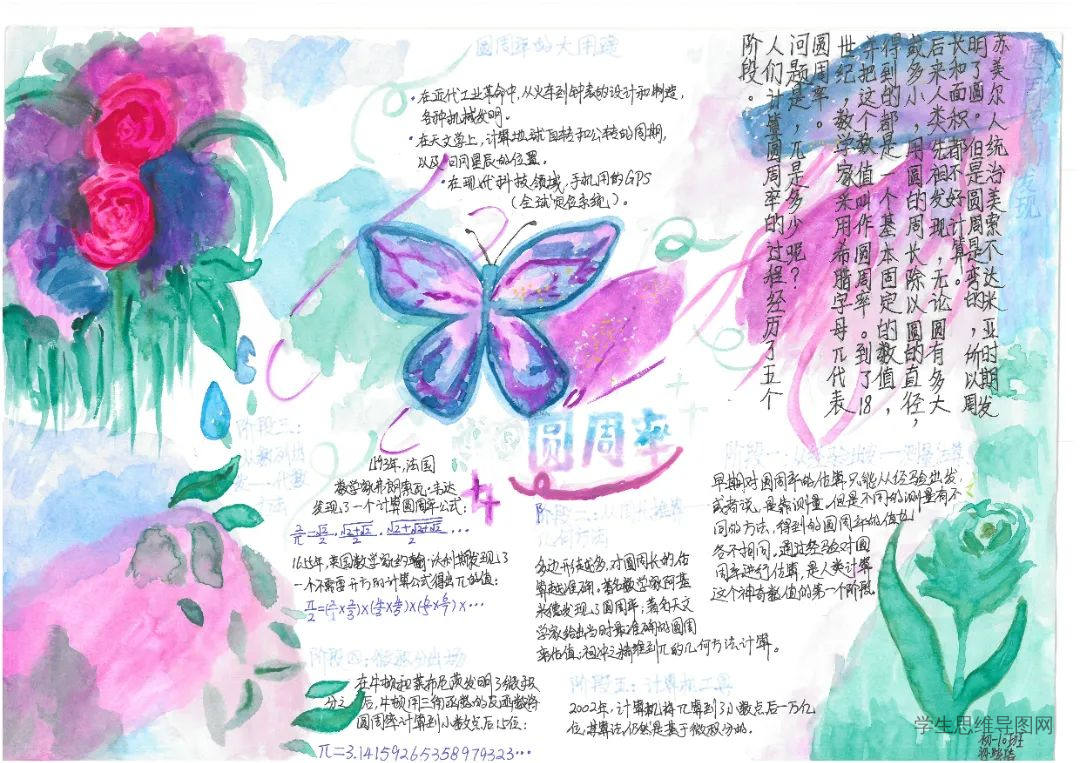 圆周率的大用途
·在近代工业革命中,从火车到钟表的设计和制造,
各种机械发明。
·在天文学上,计算地球自转和公转的周期,
以及日月星辰的位置。
·在现代科技领域,手机用的GPS
(全球定位系统)。
苏美尔人统治美索不达米亚的时期发
明了圆,但是圆周是弯的,所以周
长和面积都不好计算。
后来人类先祖发现,无论圆有多大
或多小,用圆的周长除以圆的直径,
得到的都是一个基本固定的数值,
并把这个数值叫作圆周率。到了18
世纪,数学家采用希腊字母π代表
圆周率。
问题是,π是多少呢?
人们计算圆周率的过程经历了五个
阶段。
圆周率
阶段一:
早期对圆周率的估算只能从经验出发,
或者说,是靠测量,但是不同的测量有不
同的方法,得到的圆周率的值也
各不相同。通过经验对圆
周率进行估算,是人类计算
这个神奇数值的第一个阶段。
阶段二:
几何方法
多边形越多,对圆周长的估
算越准确。著名数学家阿基
米德发现了圆周率;著名天文
学家给出当时最准确的圆周
率估值;祖冲之
π的几何方法计算。
阶段三:
1593年,法国
数学家弗朗索瓦·韦达
发现了一个计算圆周率公式:
2/π=√2/2·√(2+√2)/2·√(2+√(2+√2))/2···
1655年,英国数学家约翰·沃利斯发现了
一个不需要开方的计算公式得出π的值:
π/2=(2/1×2/3)×(4/3×4/5)×(6/5×6/7)×···
阶段四:微积分出场
在牛顿和莱布尼茨发明了微积
分之后,牛顿用三角函数的反函数将
圆周率计算到小数点后15位:
π=3.14159265358979323···
阶段五:计算机工具
2002年,计算机将π算到了小数点后一万亿
位,其算法,仍然是基于微积分的。
学生思维导图网
初一10班